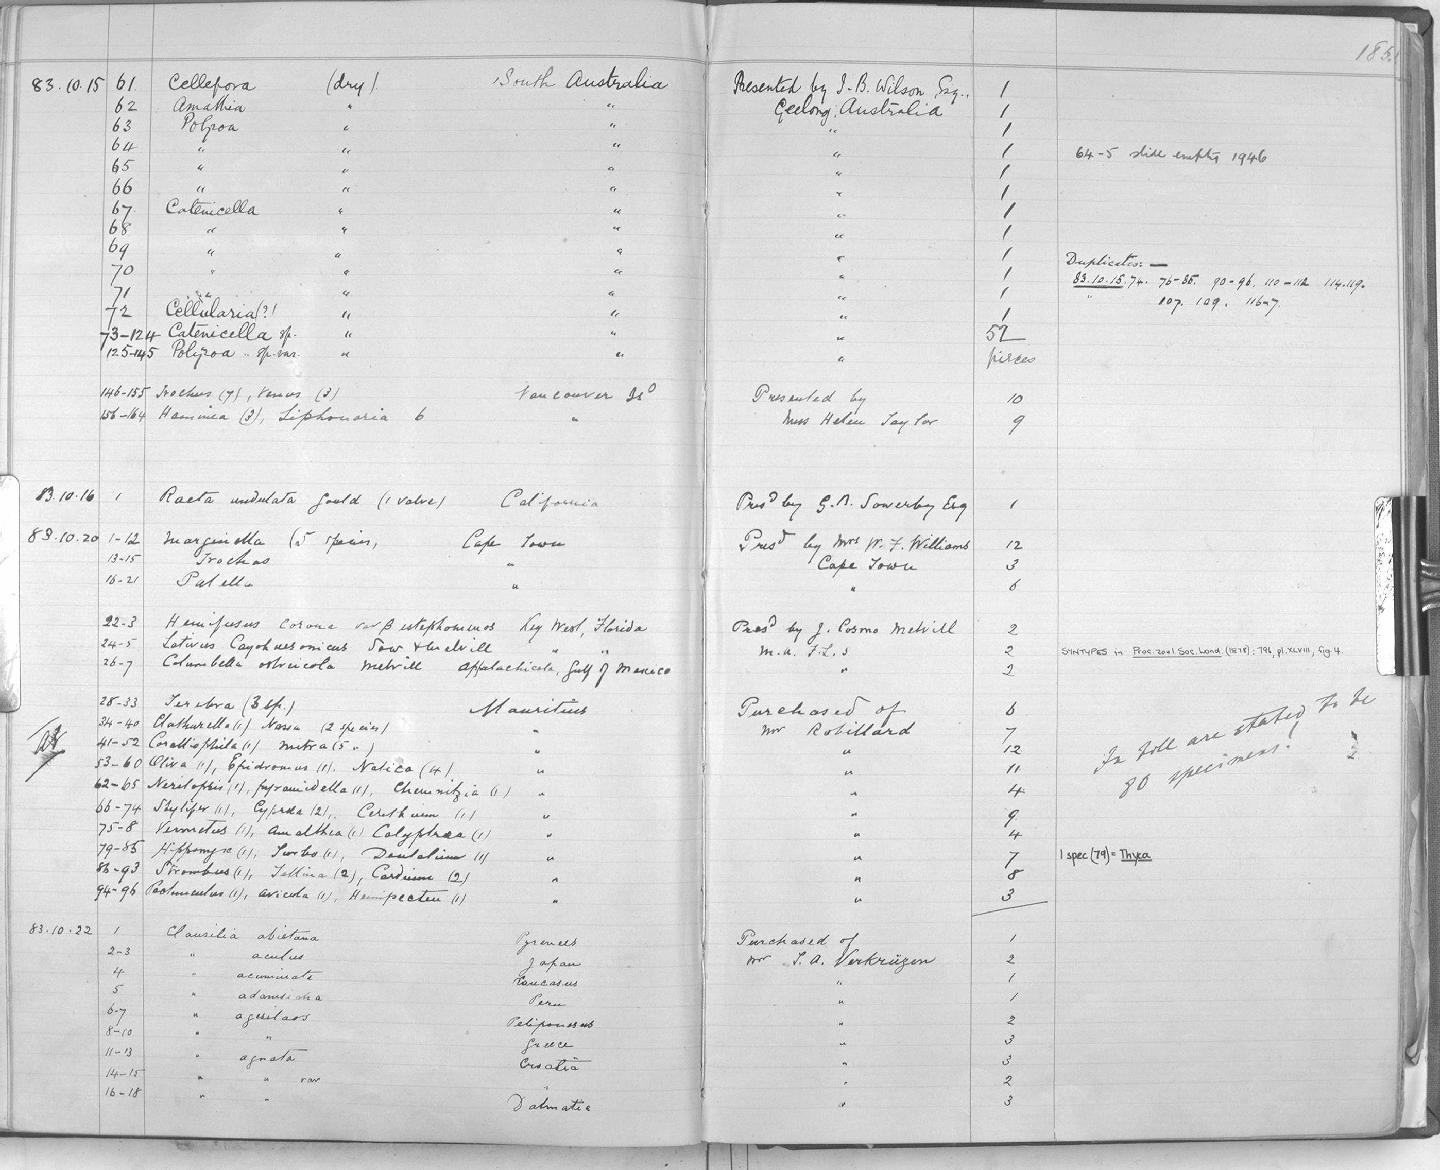 185
83.10.15 61 Cellepora (dry) South Australia Presented by J. B. Wilson Esq., 1
62 Amathia " " Geelong, Australia 1
63 Polyzoa " " " 1
64 " " " " 1 64-5 slide empty 1946
65 " " " " 1
66 " " " " 1
67 Catenicella " " " 1
68 " " " " 1
69 " " " " 1 Duplicates:—
70 " " " " 1 83.10.15.74. 76-85. 90-96. 110-112 114.119.
71 " " " " 1 " 107. 109. 116-7.
72 Cellularia (?) " " " 1
73-124 Catenicella sp. " " " 52
125-145 Polyzoa " sp. var. " " " pieces
146-155 Trochus (7), Venus (3) Vancouver Isd Presented by 10
156-164 Haminea (3), Siphonaria 6 " Miss Helen Taylor 9
83.10.16 1 Raeta undulata Gould (1 valve) California Presd by G. B. Sowerby Esq 1
83.10.20 1-12 Marginella (5 species, Cape Town Presd by Mrs W. F. Williams 12
13-15 Trochus " Cape Town 3
16-21 Patella " " 6
22-3 Hemifusus corona var β estephomenos Key West, Florida Presd by J. Cosmo Melvill 2
24-5 Latirus Cayohuesonicus Sow & Melvill " " M.A. F.L.S 2 SYNTYPES in Proc. zool. Soc. Lond. (1878): 796, pl. XLVIII, fig. 4.
26-7 Columbella Melvill Appalachicola, Gulf of Mexico " 2
28-33 Terebra (3 sp.) Mauritius Purchased of 6
34-40 Clathurella (1) Nassa (2 species) " Mr Robillard 7
41-52 Coralliophila (1) Mitra (5 ") " " 12 In Toll are stated to be
53-60 Oliva (1), Epidromus (1). Natica (4) " " 11 80 specimens!
62-65 Neritopsis (1), pyramidella (1), Chemnitzia (1) " " 4
66-74 Stylifer (1), Cypraea (2), Cerithium (1) " " 9
75-8 Vermetus (1), Amalthea (1) Calyptraea (1) " " 4
79-85 Hipponyx (1), Turbo (1), Dentalium (1) " " 7 1 spec (79) = Thyca
86-93 Strombus (1), Tellina (2), Cardium (2) " " 8
94-96 Pectunculus (1), avicula (1), Hemipecten (1) " " 3
83.10.22 1 Clausilia abietana Pyrenees Purchased of 1
2-3 " aculus Japan Mr T. A. Verkrüzen 2
4 " acuminata Caucasus " 1
5 " adamsiana Peru " 1
6-7 " agesilaos Peliponesus " 2
8-10 " " Greece " 3
11-13 " agnata Croatia " 3
14-15 " " var " " 2
16-18 " " Dalmatia " 3